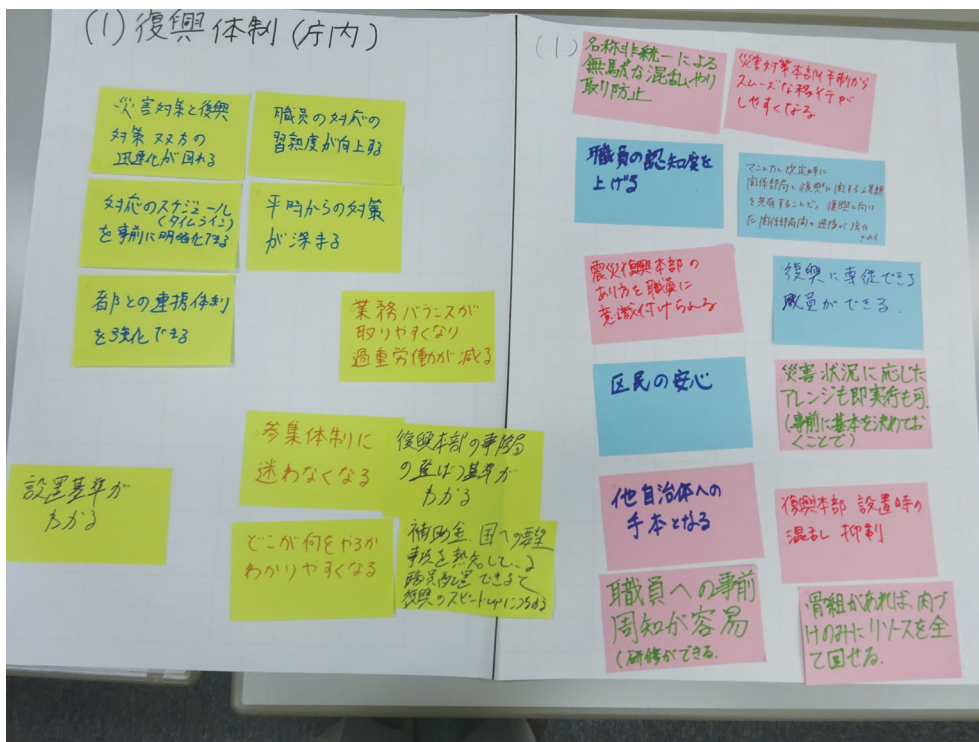 (1)復興体制(庁内)
災害対策と復興
対策双方の
迅速化が図れる
職員の対応の
習熟度が向上する
対応のスケジュール
(タイムライン)
を事前に明確化できる
平時からの対策
が深まる
都との連携体制
を強化できる
業務バランスが
取りやすくなり
過重労働が減る
参集体制に
迷わなくなる
復興本部の事務局
の立ち上げ基準が
わかる
設置基準が
わかる
どこが何をやるか
わかりやすくなる
補助金、国への要望
事項を熟知している
職員配置できると
復興のスピードupにつながる
(1)
名称非統一による
無駄な混乱、やり
取り防止
災害対策本部体制から
スムーズな移行が
しやすくなる
職員の認知度を
上げる
マニュアル改定時に
関係部局と復興に関する課題
を共有することで、復興に向け
た関係部局間の連携が強化
される
震災復興本部の
あり方を職員に
意識付けられる
復興に専従できる
職員ができる。
区民の安心
災害状況に応じた
アレンジも即実行も可。
(事前に基本を決めてお
くことで)
他自治体への
手本となる
復興本部設置時の
混乱抑制
職員への事前
周知が容易
(研修ができる。
骨組があれば、肉づ
けのみにリソースを全
て回せる。